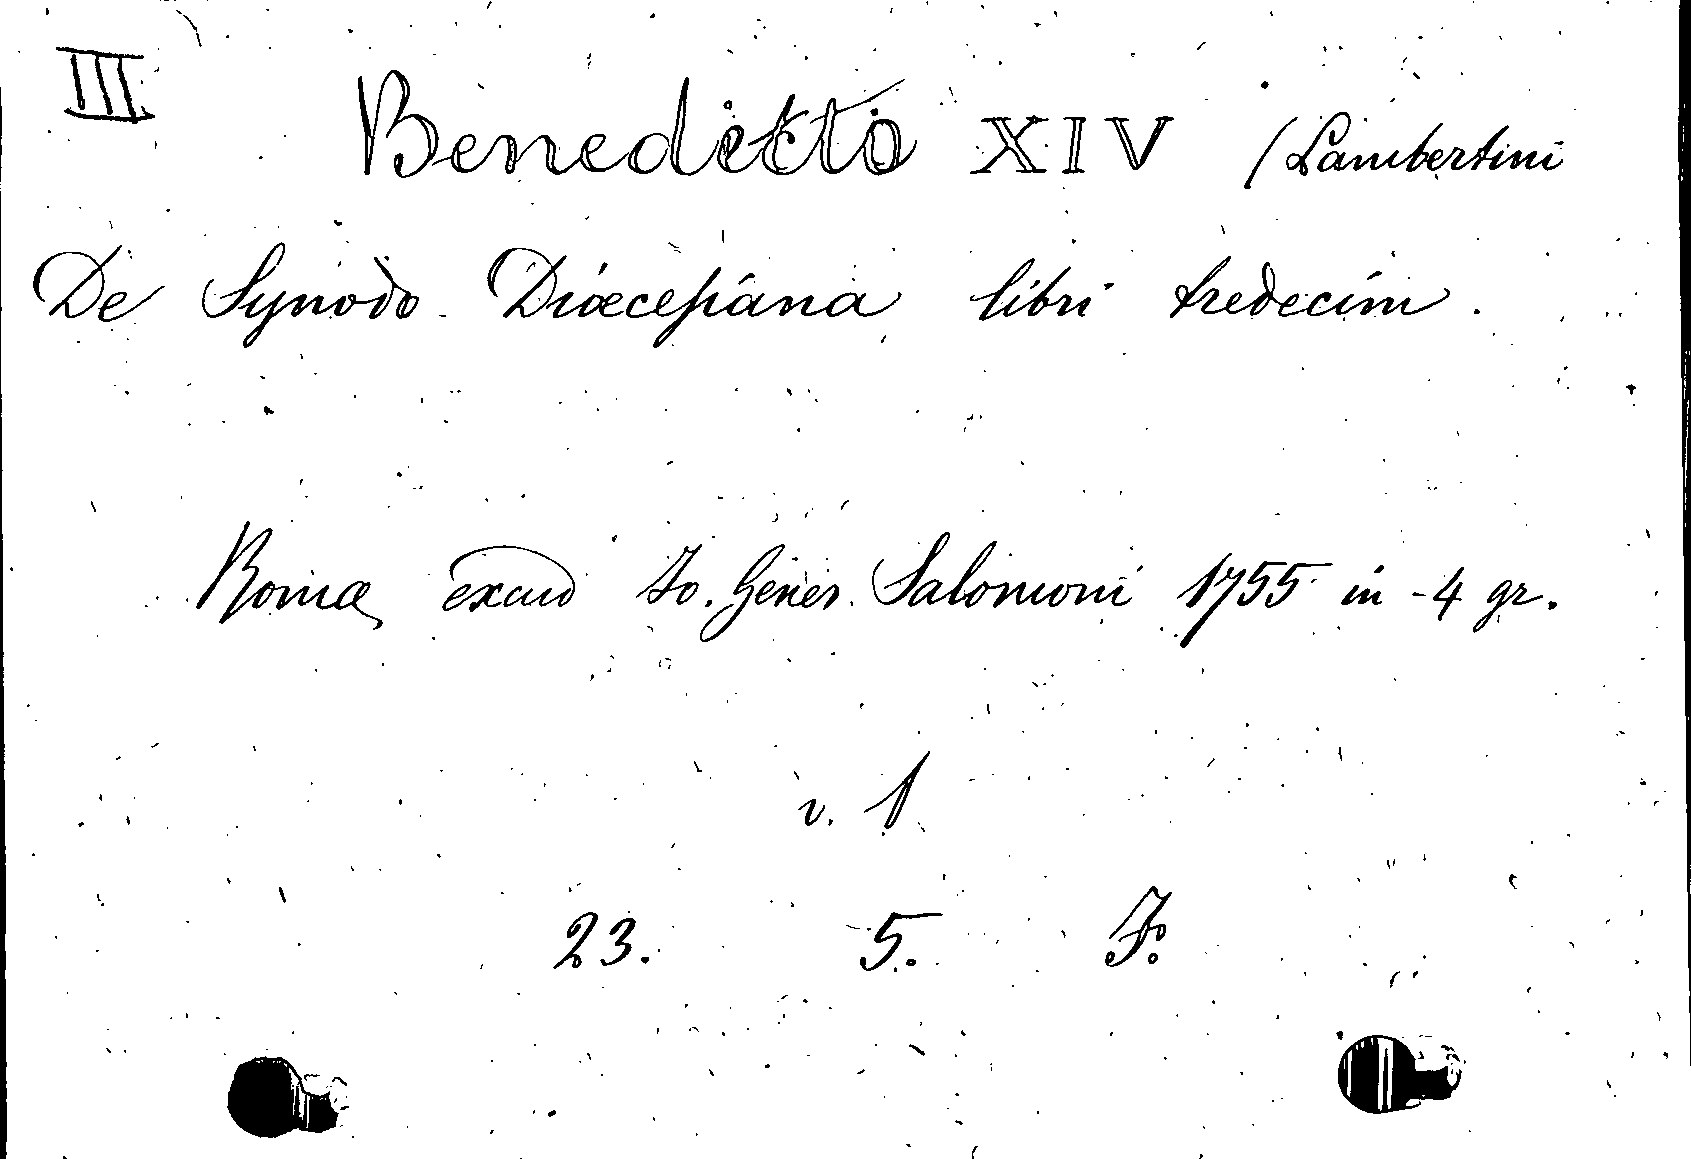 III
Benedetto XIV (Lambertini
De Synodo Diœceſiana libri tredecim.
Romæ excud Io. Gener. Salomoni 1755 in-4 gr.
v. 1
23. 5. F.